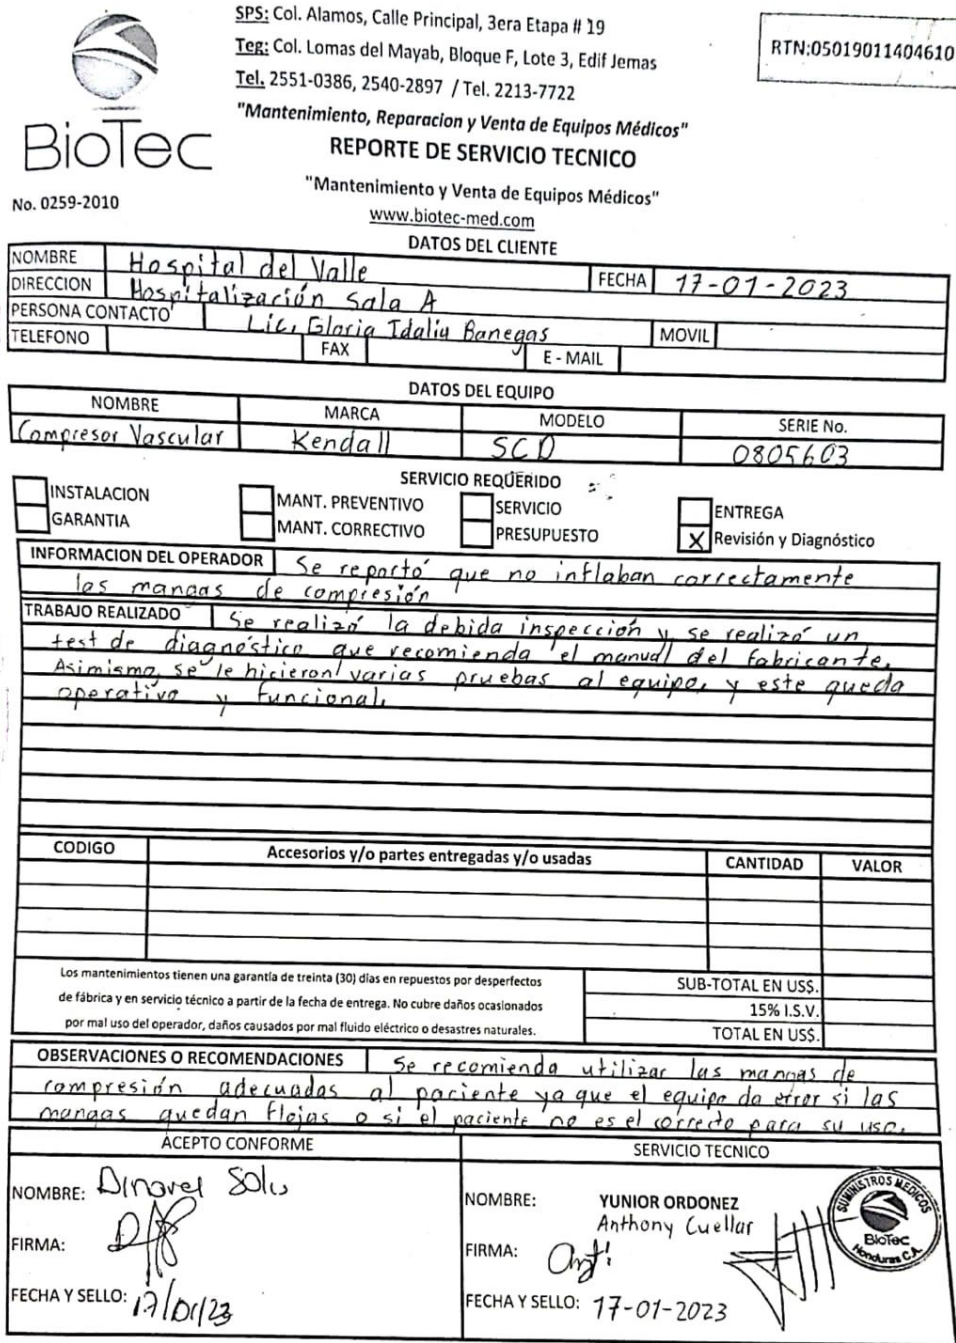 SPS: Col. Alamos, Calle Principal, 3era Etapa # 19
Teg: Col. Lomas del Mayab, Bloque F, Lote 3, Edif Jemas
Tel. 2551-0386, 2540-2897 / Tel. 2213-7722
"Mantenimiento, Reparacion y Venta de Equipos Médicos"
REPORTE DE SERVICIO TECNICO
"Mantenimiento y Venta de Equipos Médicos"
www.biotec-med.com
RTN:05019011404610
BioTec
No. 0259-2010
DATOS DEL CLIENTE
NOMBRE Hospital del Valle FECHA 17-01-2023
DIRECCION Hospitalización Sala A
PERSONA CONTACTO Lic. Gloria Idalia Banegas MOVIL
TELEFONO FAX E - MAIL
DATOS DEL EQUIPO
NOMBRE MARCA MODELO SERIE No.
Compresor Vascular Kendall SCD 0805603
SERVICIO REQUERIDO
INSTALACION MANT. PREVENTIVO SERVICIO ENTREGA
GARANTIA MANT. CORRECTIVO PRESUPUESTO X Revisión y Diagnóstico
INFORMACION DEL OPERADOR Se reportó que no inflaban correctamente
las mangas de compresión
TRABAJO REALIZADO Se realizó la debida inspección y se realizó un
test de diagnóstico que recomienda el manual del fabricante.
Asimismo, se le hicieron varias pruebas al equipo, y este queda
operativo y funcional.
CODIGO Accesorios y/o partes entregadas y/o usadas CANTIDAD VALOR
Los mantenimientos tienen una garantía de treinta (30) días en repuestos por desperfectos
de fábrica y en servicio técnico a partir de la fecha de entrega. No cubre daños ocasionados
por mal uso del operador, daños causados por mal fluido eléctrico o desastres naturales.
SUB-TOTAL EN US$.
15% I.S.V.
TOTAL EN US$.
OBSERVACIONES O RECOMENDACIONES Se recomienda utilizar las mangas de
compresión adecuadas al paciente ya que el equipo da error si las
mangas quedan flojas o si el paciente no es el correcto para su uso.
ACEPTO CONFORME
NOMBRE: Dinorel Solis
FIRMA:
FECHA Y SELLO: 17/01/23
SERVICIO TECNICO
NOMBRE: YUNIOR ORDONEZ
Anthony Cuellar
FIRMA:
FECHA Y SELLO: 17-01-2023
SUMINISTROS MEDICOS
BioTec
Honduras C.A.